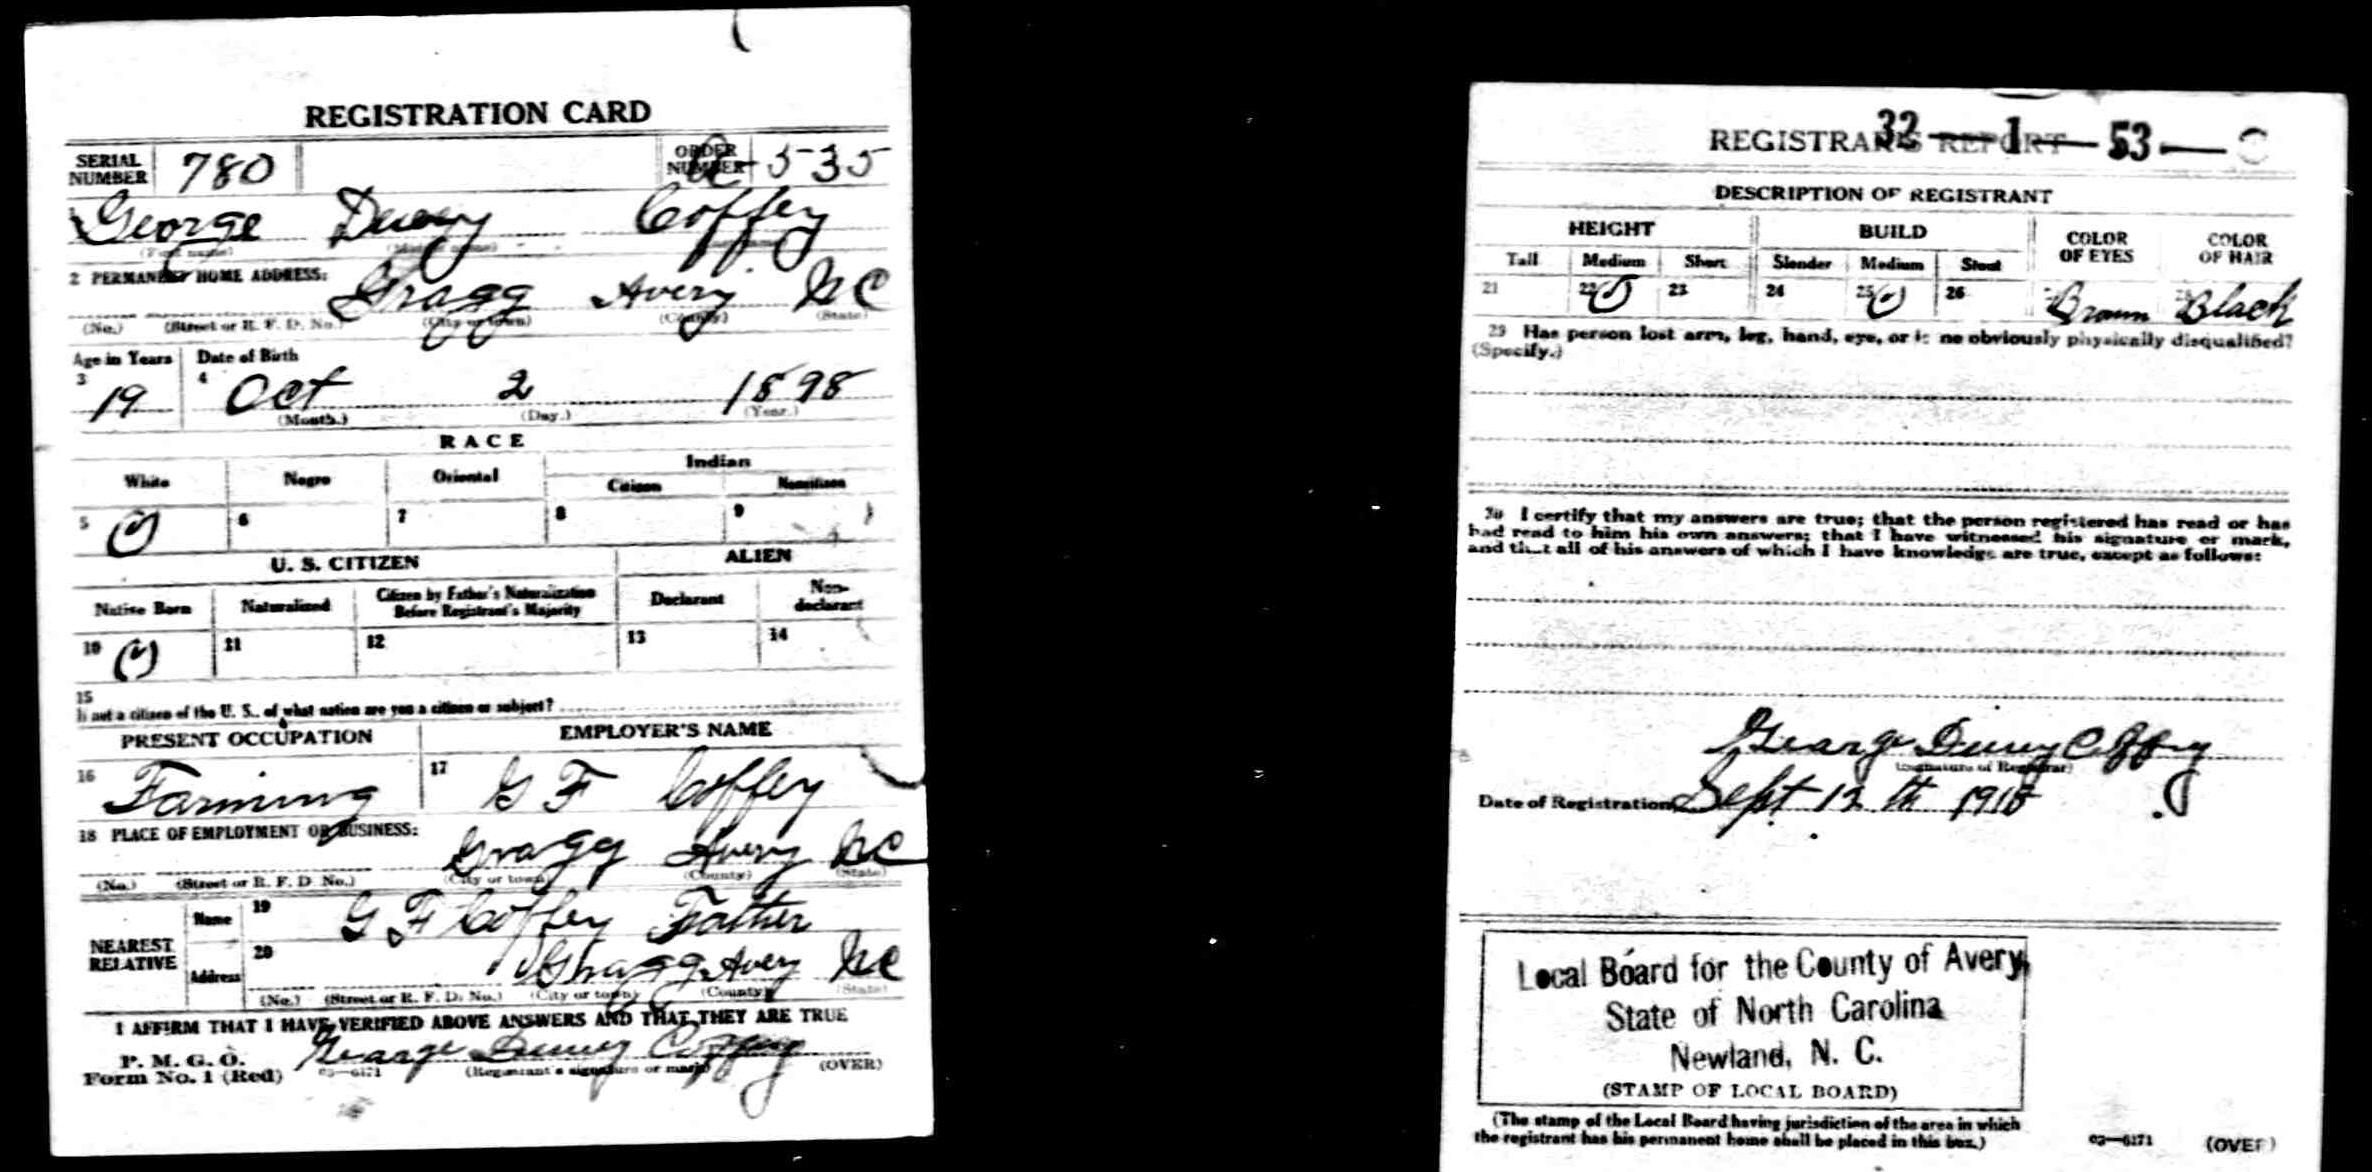 REGISTRATION CARD
SERIAL NUMBER 780 ORDER NUMBER A-535
George Dewey Coffey
2 PERMANENT HOME ADDRESS: Gragg Avery NC
(No.) (Street or R. F. D. No.) (City or town) (County) (State)
Age in Years Date of Birth
3 19 4 Oct 2 1898
(Month.) (Day.) (Year.)
RACE
White Negro Oriental Indian
Citizen Noncitizen
5 6 7 8 9
U. S. CITIZEN ALIEN
Native Born Naturalized Citizen by Father's Naturalization Before Registrant's Majority Declarant Non-declarant
10 11 12 13 14
15
If not a citizen of the U. S., of what nation are you a citizen or subject?
PRESENT OCCUPATION EMPLOYER'S NAME
16 Farming 17 G F Coffey
18 PLACE OF EMPLOYMENT OR BUSINESS:
Gragg Avery NC
(No.) (Street or R. F. D. No.) (City or town) (County) (State)
NEAREST RELATIVE
Name 19 G F Coffey Father
Address 20 Gragg Avery NC
(No.) (Street or R. F. D. No.) (City or town) (County) (State)
I AFFIRM THAT I HAVE VERIFIED ABOVE ANSWERS AND THAT THEY ARE TRUE
P. M. G. O.
Form No. 1 (Red) George Dewey Coffey
03—6171 (Registrant's signature or mark) (OVER)
REGISTRAR'S REPORT 32—1—53—C
DESCRIPTION OF REGISTRANT
HEIGHT BUILD COLOR OF EYES COLOR OF HAIR
Tall Medium Short Slender Medium Stout
21 22 23 24 25 26 Brown Black
29 Has person lost arm, leg, hand, eye, or is he obviously physically disqualified?
(Specify.)
30 I certify that my answers are true; that the person registered has read or has
had read to him his own answers; that I have witnessed his signature or mark,
and that all of his answers of which I have knowledge are true, except as follows:
George Dewey Coffey
(Signature of Registrar)
Date of Registration Sept 12th 1918
Local Board for the County of Avery,
State of North Carolina
Newland, N. C.
(STAMP OF LOCAL BOARD)
(The stamp of the Local Board having jurisdiction of the area in which
the registrant has his permanent home shall be placed in this box.)
03—6171 (OVER)